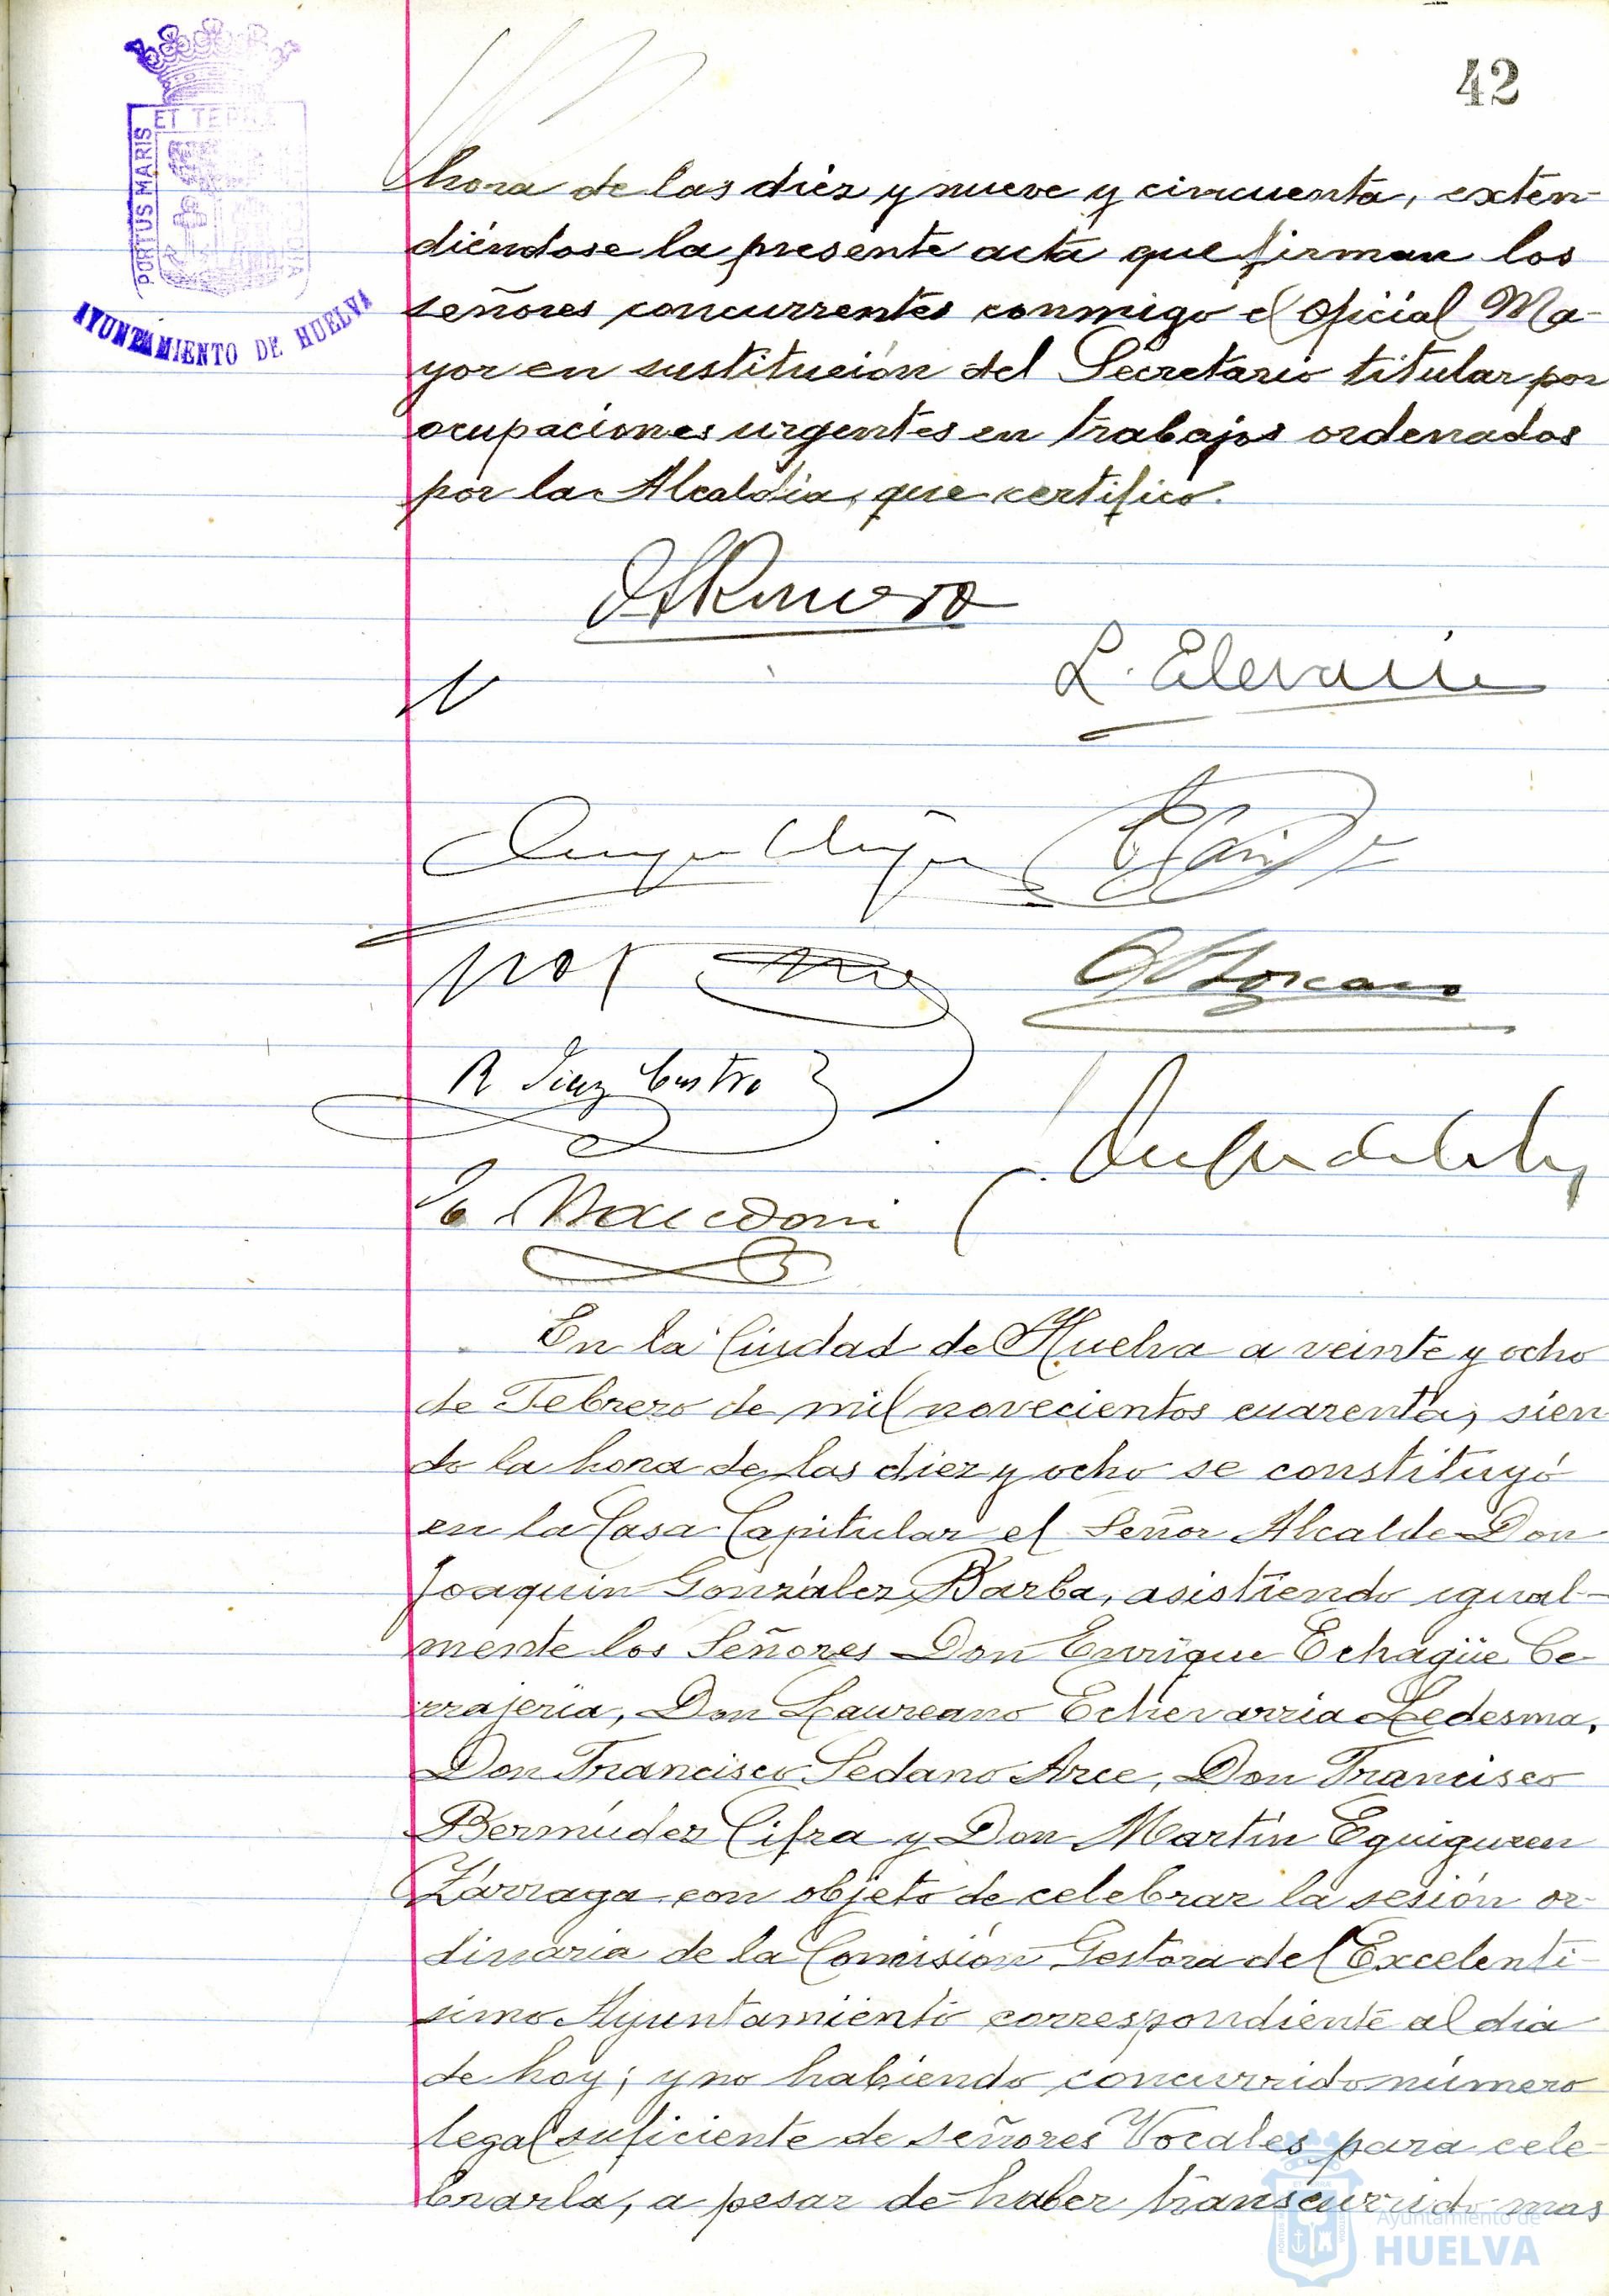 42
ET TERRE
PORTUS MARIS
AYUNTAMIENTO DE HUELVA
hora de las diez y nueve y cincuenta, exten-
diéndose la presente acta que firman los
señores concurrentes conmigo el Oficial Ma-
yor en sustitución del Secretario titular por
ocupaciones urgentes en trabajos ordenados
por la Alcaldía, que certifico.
R Diaz Castro
En la Ciudad de Huelva a veinte y ocho
de Febrero de mil novecientos cuarenta, sien
do la hora de las diez y ocho se constituyó
en la Casa Capitular el Señor Alcalde Don
Joaquin González Barba, asistiendo igual-
mente los Señores Don Enrique Echagüe Ce-
rrajería, Don Laureano Echevarria Ledesma,
Don Francisco Sedano Arce, Don Francisco
Bermúdez Cifra y Don Martín Eguiguren
Zárraga con objeto de celebrar la sesión or-
dinaria de la Comisión Gestora del Excelentí-
simo Ayuntamiento correspondiente al dia
de hoy; y no habiendo concurrido número
legal suficiente de señores Vocales para cele-
brarla, a pesar de haber transcurrido mas
Ayuntamiento de
HUELVA